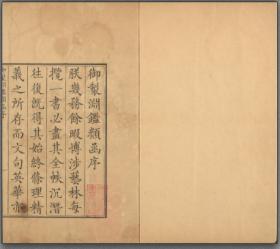 御製淵鑑類函序
朕幾務餘暇博涉藝林每
攬一書必盡其全帙沉潛
往復既得其始終條理精
義之所存而文句英華亦